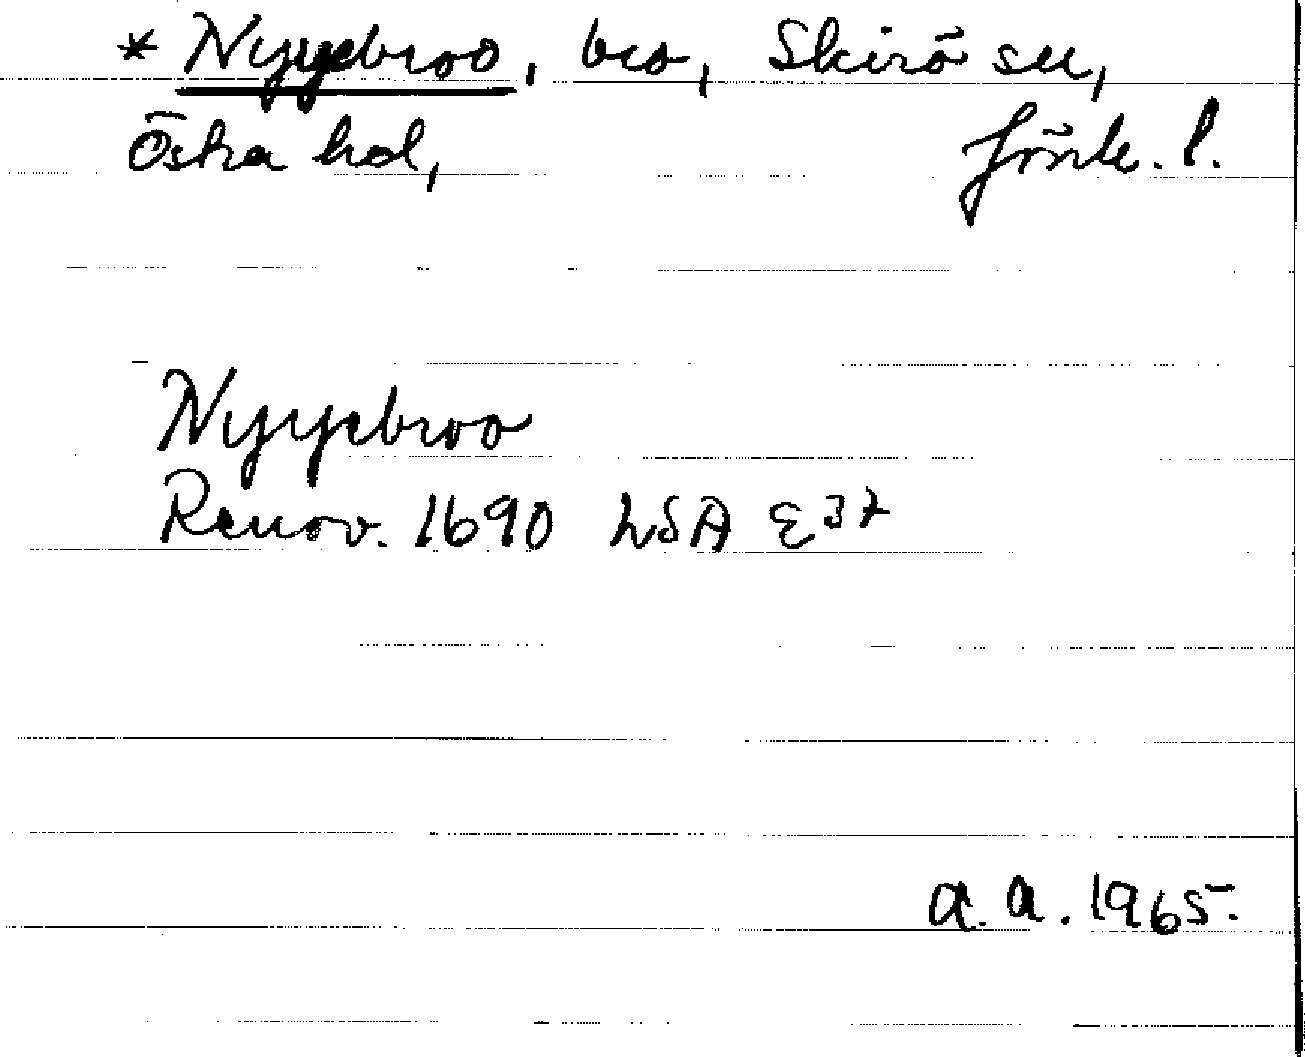 * Nyyebroo, bro, Skirö sn,
Östra hd, Jönk. l.
Nyyebroo
Renov. 1690 LSA E 37
a. a. 1965.